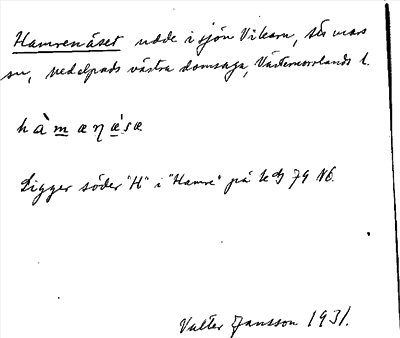 Hamrenäset udde i sjön Vikarn, Stömars
sn, Medelpads västra domsaga, Västernorrlands l.
hàmæŋæ̀sæ
Ligger söder "H" i "Hamre" på kbl 79 NÖ.
Valter Jansson 1931.